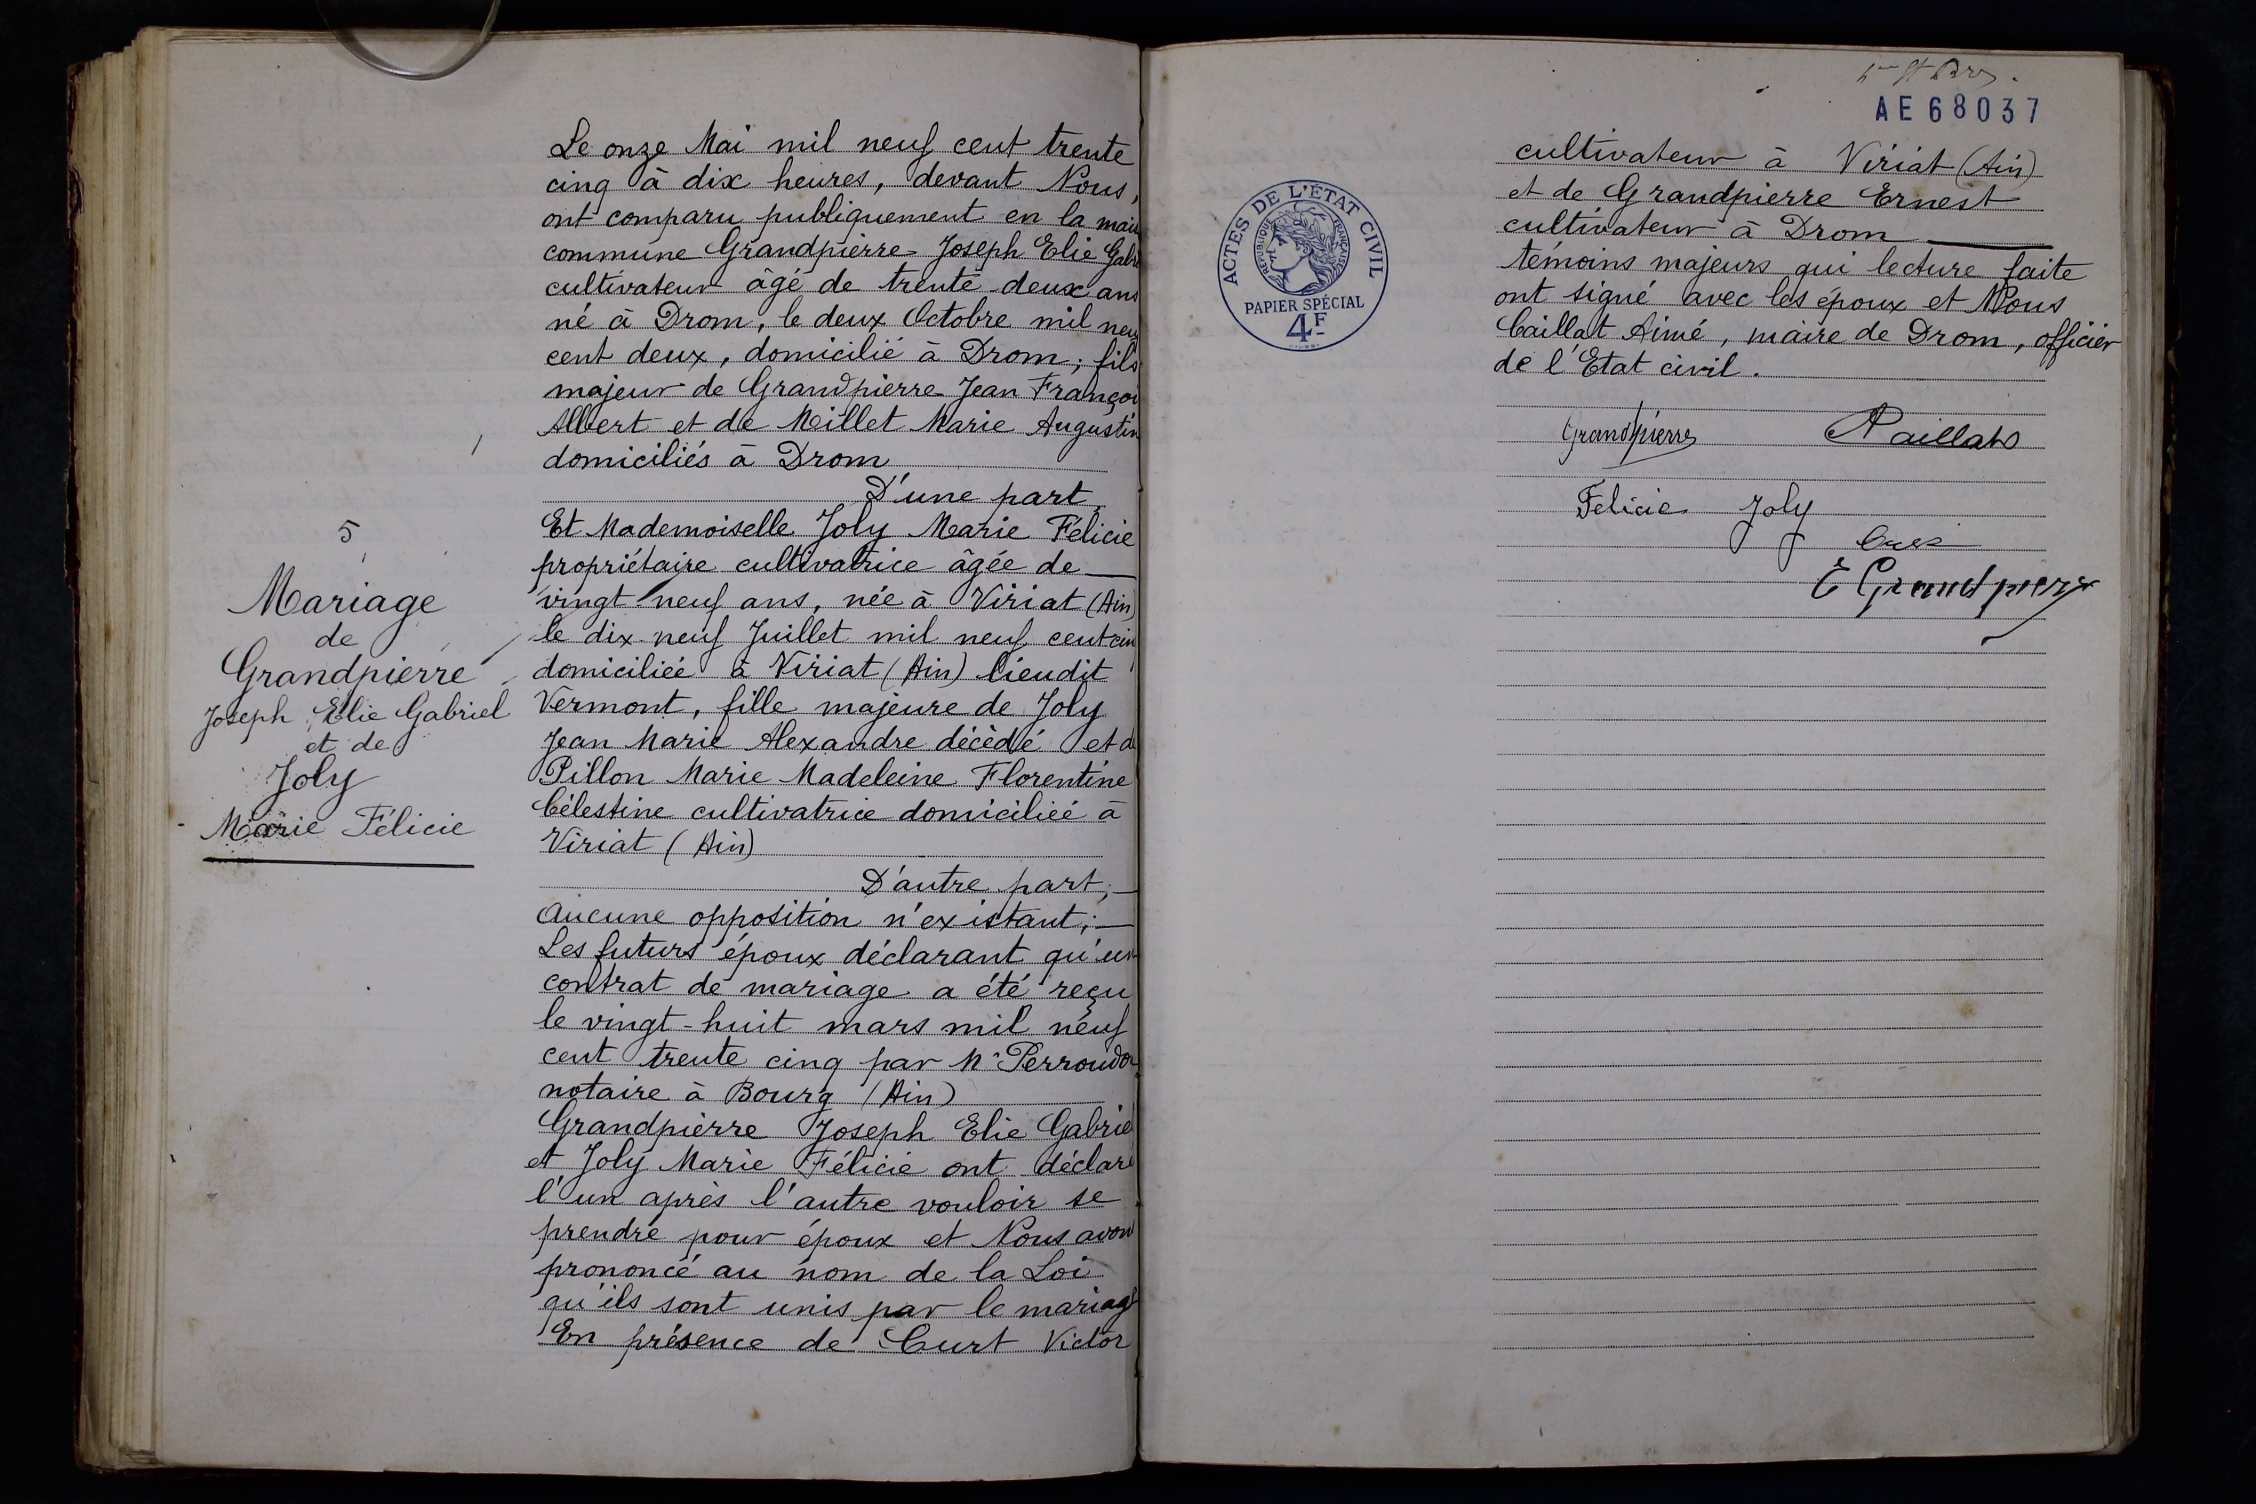 5
Mariage
de
Grandpierre
Joseph Elie Gabriel
et de
Joly
Marie Félicie
Le onze Mai mil neuf cent trente
cinq à dix heures, devant Nous,
ont comparu publiquement en la mais
commune Grandpierre Joseph Elie Gabri
cultivateur âgé de trente deux ans
né à Drom, le deux Octobre mil neu
cent deux, domicilié à Drom; fils
majeur de Grandpierre Jean Françoi
Albert et de Millet Marie Augustin
domiciliés à Drom
D'une part
Et Mademoiselle Joly Marie Félicie
propriétaire cultivatrice âgée de
vingt neuf ans, née à Viriat (Ain)
le dix neuf Juillet mil neuf cent cin
domiciliée à Viriat (Ain) lieudit
Vermont, fille majeure de Joly
Jean Marie Alexandre décèdé et d
Pillon Marie Madeleine Florentine
Célestine cultivatrice domiciliée à
Viriat (Ain)
D'autre part;
Aucune opposition n'existant;
Les futurs époux déclarant qu'un
contrat de mariage a été reçu
le vingt-huit mars mil neuf
cent trente cinq par Me Perroudon
notaire à Bourg (Ain)
Grandpierre Joseph Elie Gabriel
et Joly Marie Félicie ont déclaré
l'un après l'autre vouloir se
prendre pour époux et Nous avon
prononcé au nom de la Loi
qu'ils sont unis par le mariage
En présence de Curt Victor
AE68037
ACTES DE L'ÉTAT CIVIL
RÉPUBLIQUE FRANÇAISE
PAPIER SPÉCIAL
4F
cultivateur à Viriat (Ain)
et de Grandpierre Ernest
cultivateur à Drom
témoins majeurs qui lecture faite
ont signé avec les époux et Nous
Caillat Aimé, maire de Drom, officier
de l'Etat civil.
Grandpierre Caillat
Felicie Joly
Curt
E Grandpierre